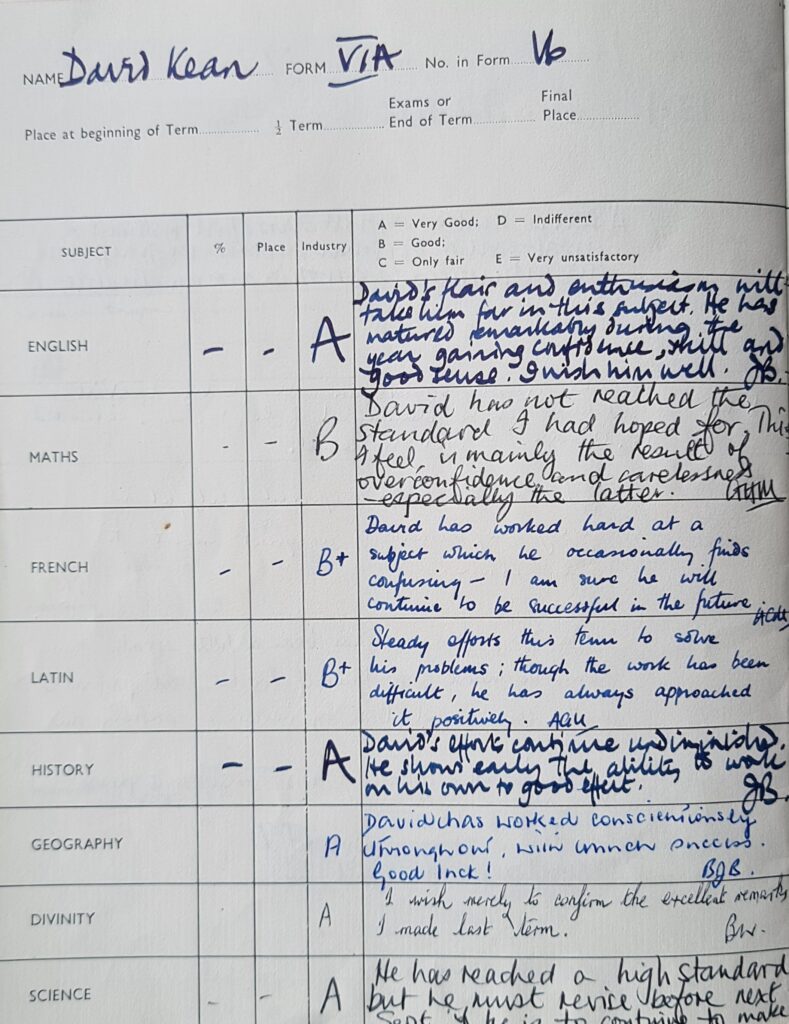 NAME David Kean FORM VIA No. in Form 16
Place at beginning of Term ½ Term Exams or End of Term Final Place
SUBJECT % Place Industry A = Very Good; D = Indifferent
B = Good;
C = Only fair E = Very unsatisfactory
ENGLISH – – A David's flair and enthusiasm will
take him far in this subject. He has
matured remarkably during the
year gaining confidence, skill and
good sense. I wish him well. JB.
MATHS - - B David has not reached the
standard I had hoped for. This
I feel is mainly the result of
overconfidence and carelessness
- especially the latter.
FRENCH – – B+ David has worked hard at a
subject which he occasionally finds
confusing – I am sure he will
continue to be successful in the future.
LATIN – – B+ Steady efforts this term to solve
his problems; though the work has been
difficult, he has always approached
it positively.
HISTORY – – A David's efforts continue undiminished.
He shows early the ability to work
on his own to good effect. JB.
GEOGRAPHY A David has worked conscientiously
throughout, with much success.
Good luck! BJB.
DIVINITY A I wish merely to confirm the excellent remarks
I made last term. BW.
SCIENCE - - A He has reached a high standard
but he must revise before next
Sept if he is to continue to make